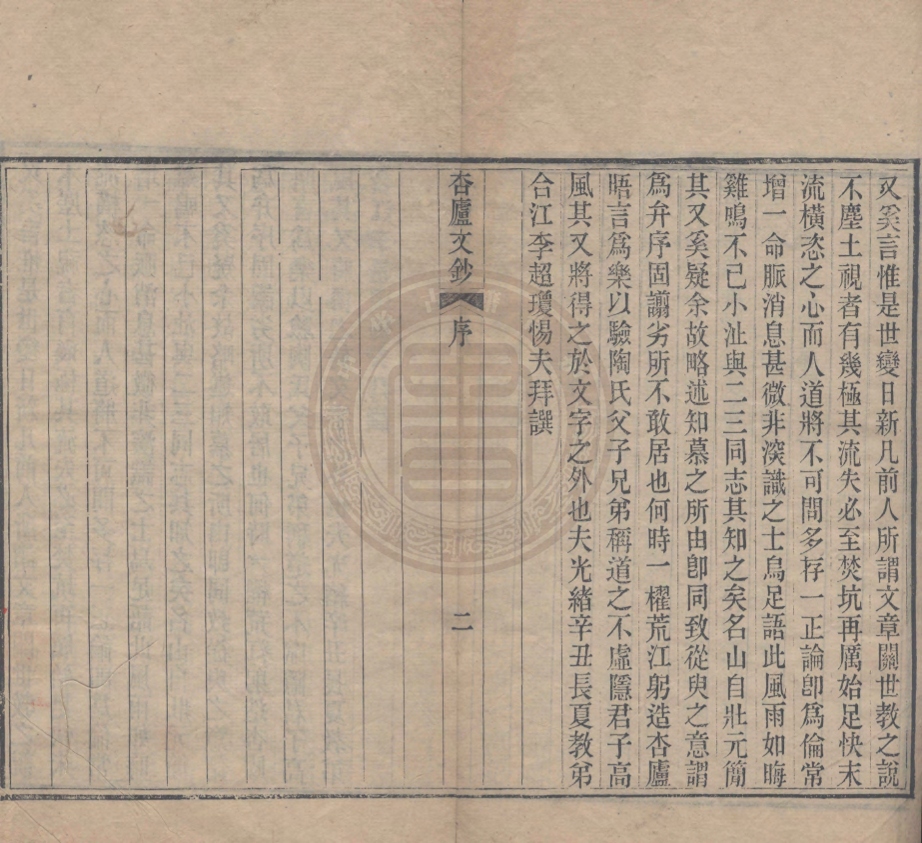 又奚言惟是世變日新凡前人所謂文章關世教之說
不塵土視者有幾極其流失必至焚坑再厲始足快末
流橫恣之心而人道將不可問多存一正論卽爲倫常
增一命脈消息甚微非深識之士烏足語此風雨如晦
雞鳴不已小沚與二三同志其知之矣名山自壯元簡
其又奚疑余故略述知慕之所由卽同致從臾之意謂
爲弁序固謭劣所不敢居也何時一櫂荒江躬造杏廬
晤言爲樂以驗陶氏父子兄弟稱道之不虛隱君子高
風其又將得之於文字之外也夫光緒辛丑長夏教弟
合江李超瓊惕夫拜譔
杏廬文鈔 序 二